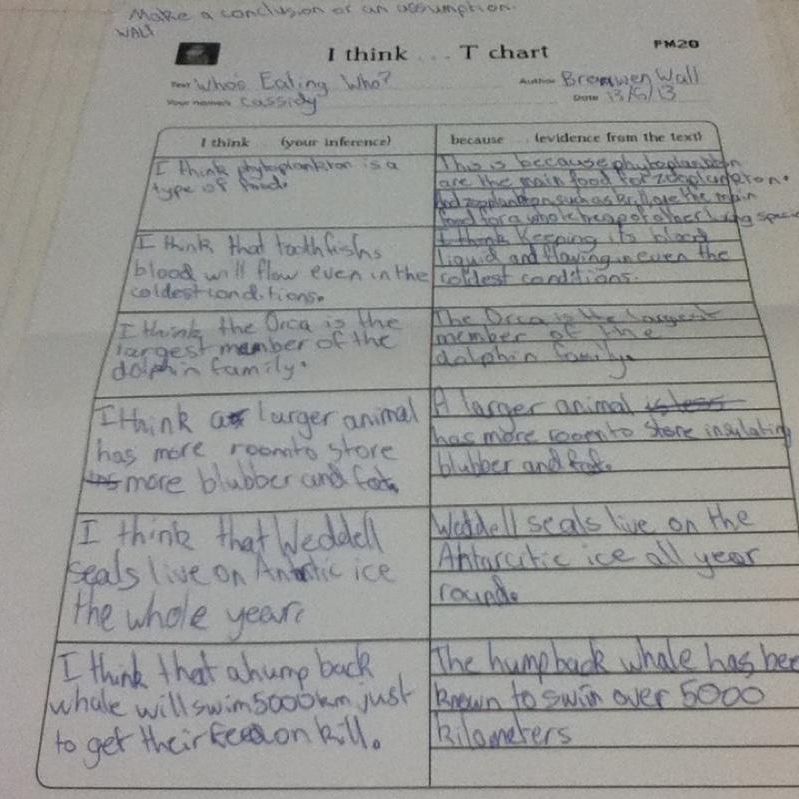 Make a conclusion or an assumption.
WALT
PM20
I think . . . T chart
Text Who's Eating Who? Author Bronwen Wall
Your name/s Cassidy Date 13/6/13
I think (your inference)
because . . . (evidence from the text)
I think phytoplankton is a
type of food.
This is because phytoplankton
are the main food for zooplankton.
And zooplankton such as krill are the main
food for a whole heap of other living species
I think that toothfishs
blood will flow even in the
coldest conditions.
I think Keeping its blood
liquid and flowing in even the
coldest conditions.
I think the Orca is the
largest member of the
dolphin family.
The Orca is the largest
member of the
dolphin family.
I think a larger animal
has more room to store
more blubber and fat.
A larger animal is less
has more room to store insulating
blubber and fat.
I think that Weddell
seals live on Antartic ice
the whole year.
Weddell seals live on the
Antarctic ice all year
round.
I think that a hump back
whale will swim 5000km just
to get their feed on krill.
The humpback whale has been
known to swim over 5000
kilometers